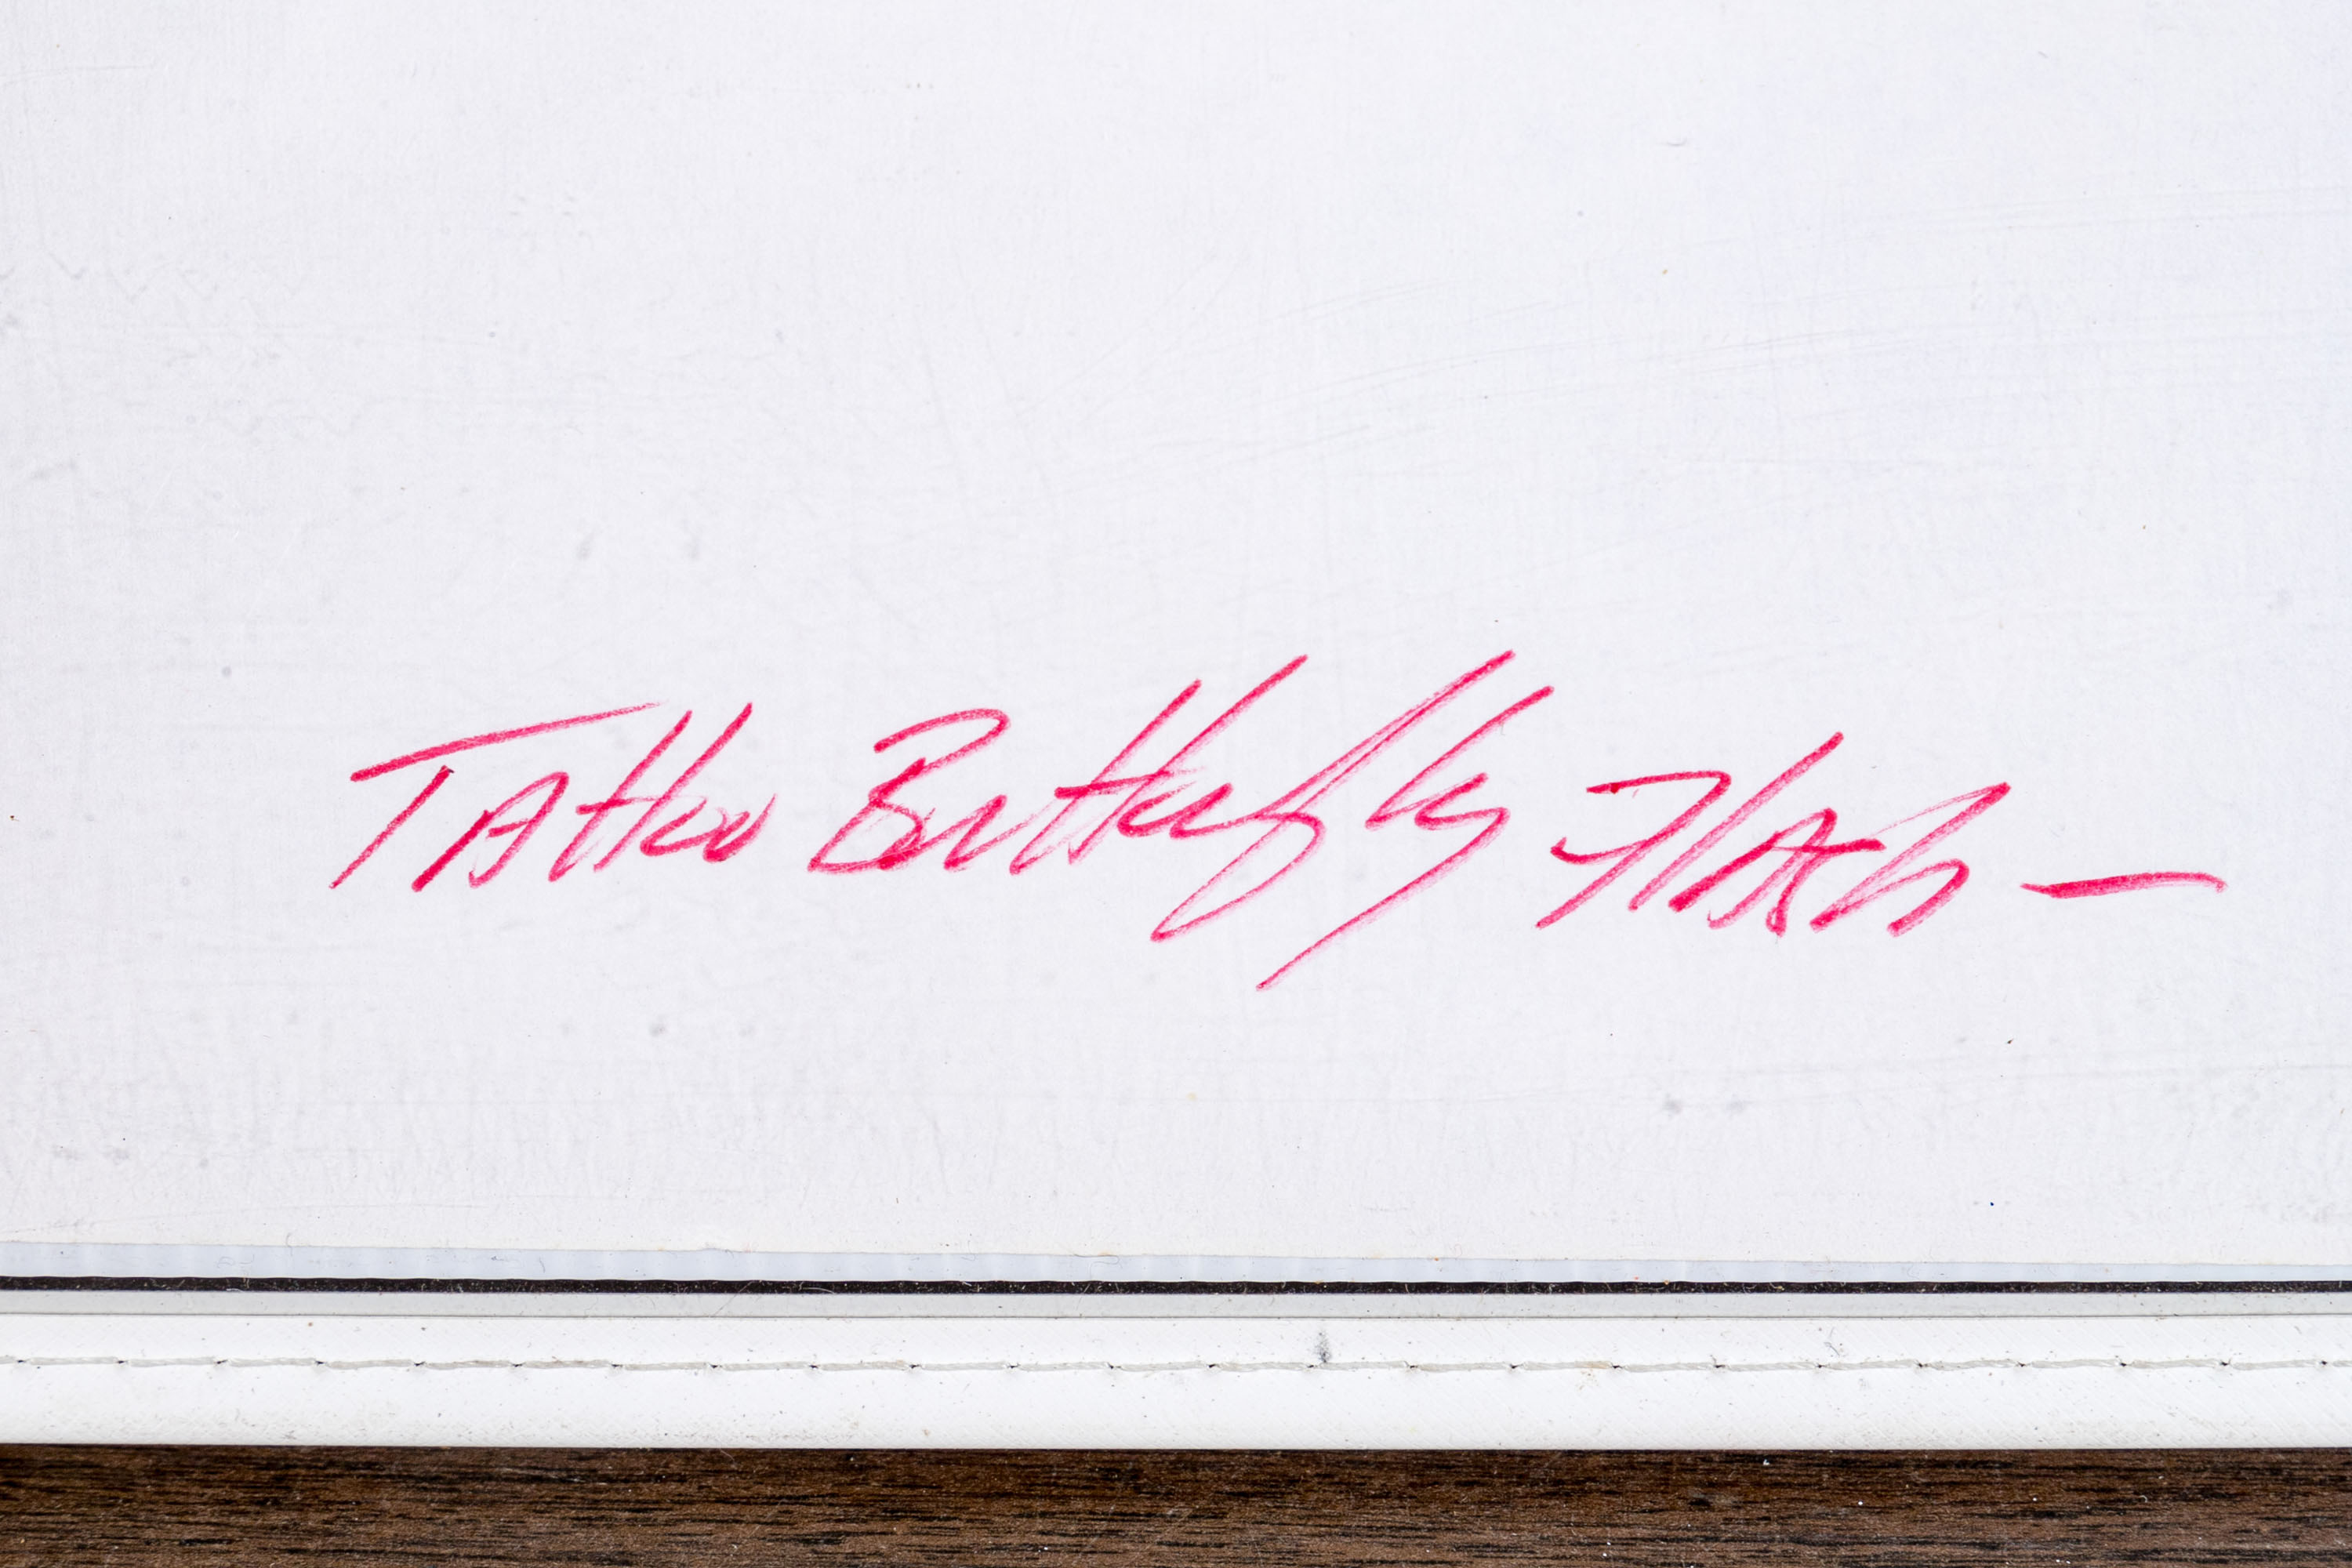 TAttoo Butterfly FlAsh —